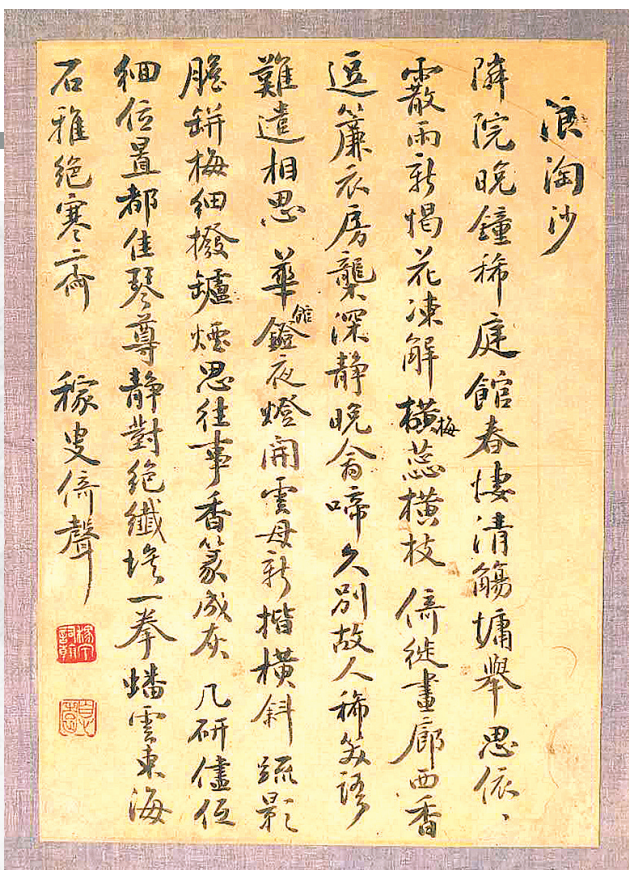 浪淘沙
隣院晚鐘稀庭館春悽清觴慵舉思依、
霰雨新惕花凍解橫梅蕊橫枝 倚徙畫廊西香
逗簾衣房櫳深靜晚禽啼久別故人稀笑語
難遣相思 華鐙館夜燈開雲母新揩橫斜疏影
膽缾梅細撥鑪煙思往事香篆成灰 几研儘低
細位置都佳琴尊靜對絕纖埃一拳蟠雲東海
石雅絕寒齋 稼叟倚聲